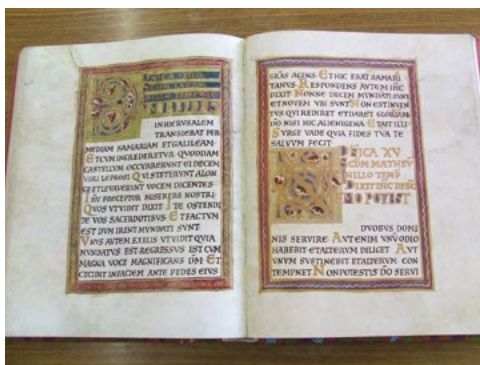 INHIERVSALEM
TRANSIEBAT PER
MEDIAM SAMARIAM ETGALILEAM
ETCVM INGREDERETVR QVODDAM
CASTELLVM OCCVRRERVNT EI DECEM
VIRI LEPROSI QVI STETERVNT ALON
GE ETLEVAVERVNT VOCEM DICENTES
IHV PRECEPTOR MISERERE NOSTRI
QVOS VTVIDIT DIXIT ITE OSTENDI
TE VOS SACERDOTIBVS ETFACTVM
EST DVM IRENT MVNDATI SVNT
VNVS AVTEM EXILLIS VTVIDIT QVIA
MVNDATVS EST REGRESSVS EST CVM
MAGNA VOCE MAGNIFICANS DM ET
CECIDIT INFACIEM ANTE PEDES EIVS
GRAS AGENS ETHIC ERAT SAMARI
TANVS RESPONDENS AVTEM IHC
DIXIT NONNE DECEM MVNDATI SVNT
ETNOVEM VBI SVNT NON ESTINVEN
TVS QVI REDIRET ETDARET GLORIAM
DO NISI HIC ALIENIGENA ETAIT ILLI
SVRGE VADE QVIA FIDES TVA TE
SALVVM FECIT
DNICA XV
SCDM MATHEV
INILLO TEMP
DIXIT IHC DISC
NEMO POTEST
DVOBVS DOMI
NIS SERVIRE AVTENIM VNVODIO
HABEBIT ETALTERVM DILIGET AVT
VNVM SVSTINEBIT ETALTERVM CON
TEMPNET NONPOTESTIS DO SERVI